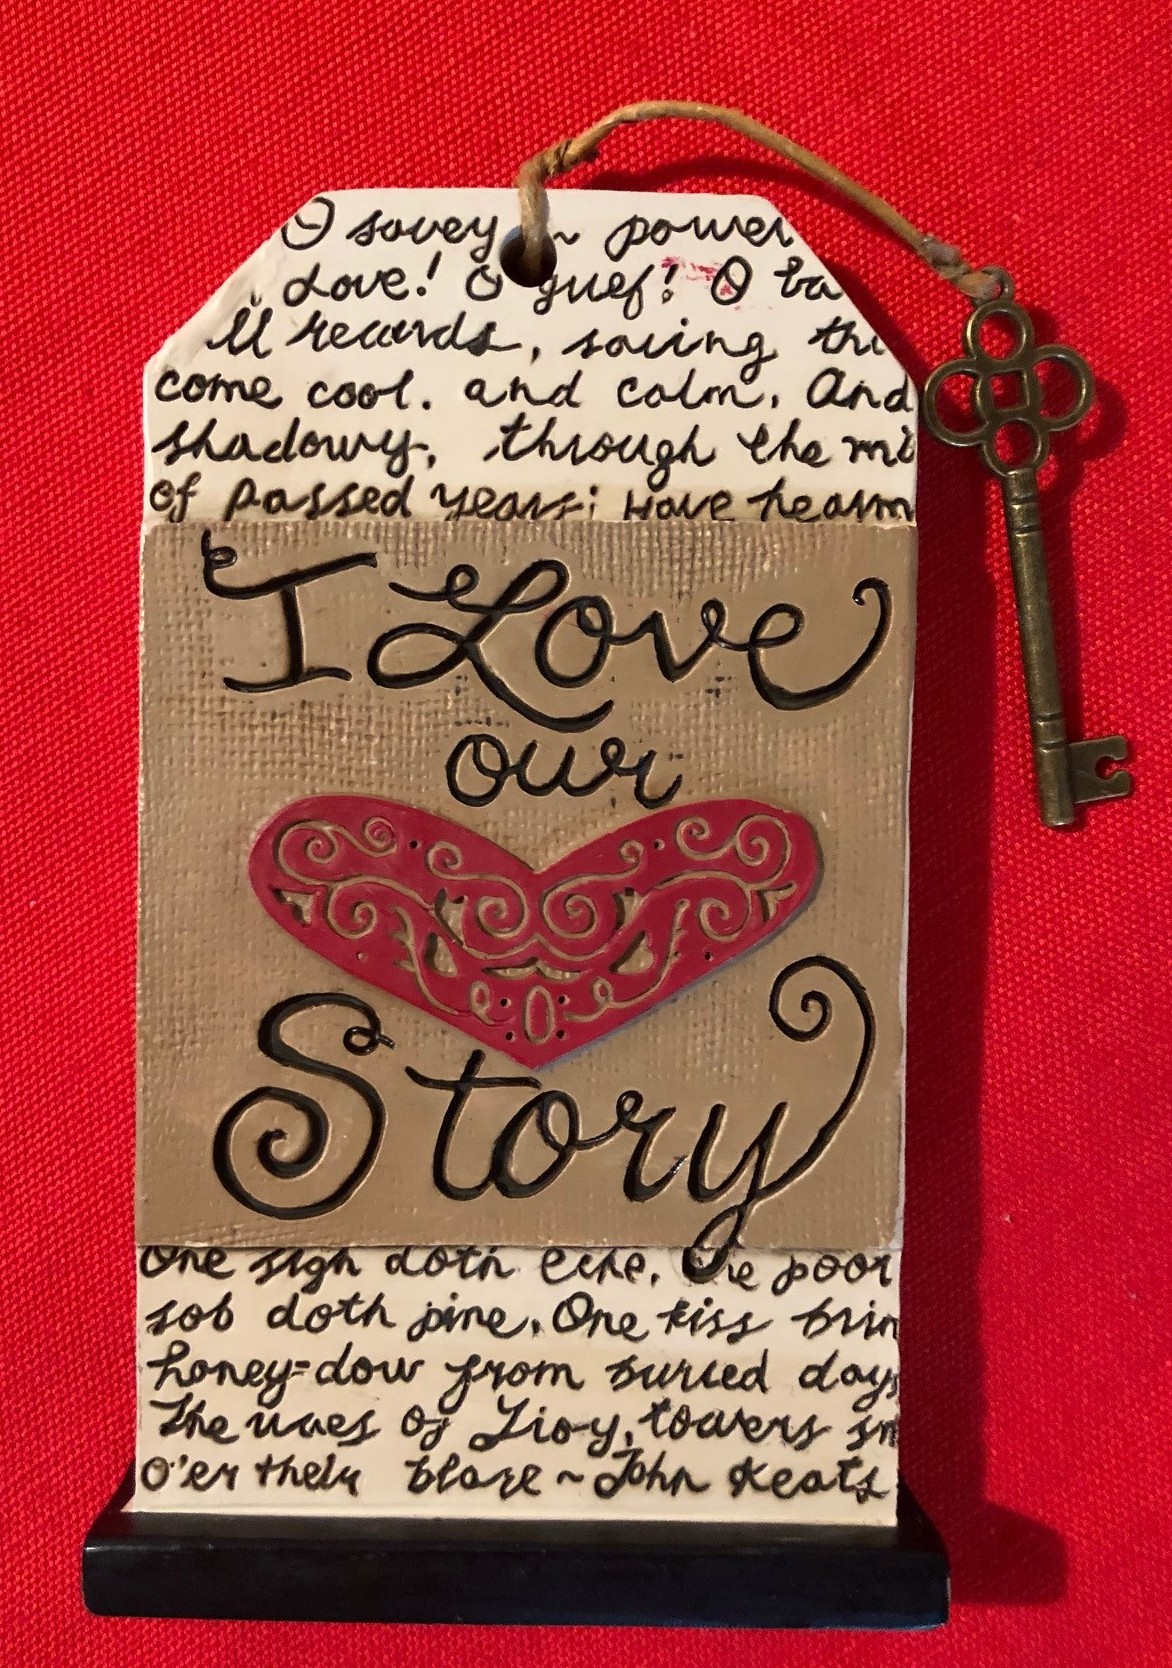 O sovey power
Love! O grief! O ba
ll records, saving the
come cool. and calm. And
shadowy, through the mi
of passed years: Have
I Love
our
Story
One sigh doth echo, One poor
sob doth pine, One kiss brin
honey-dow from buried days
The woes of Troy, towers sm
o'er their blaze ~ John Keats